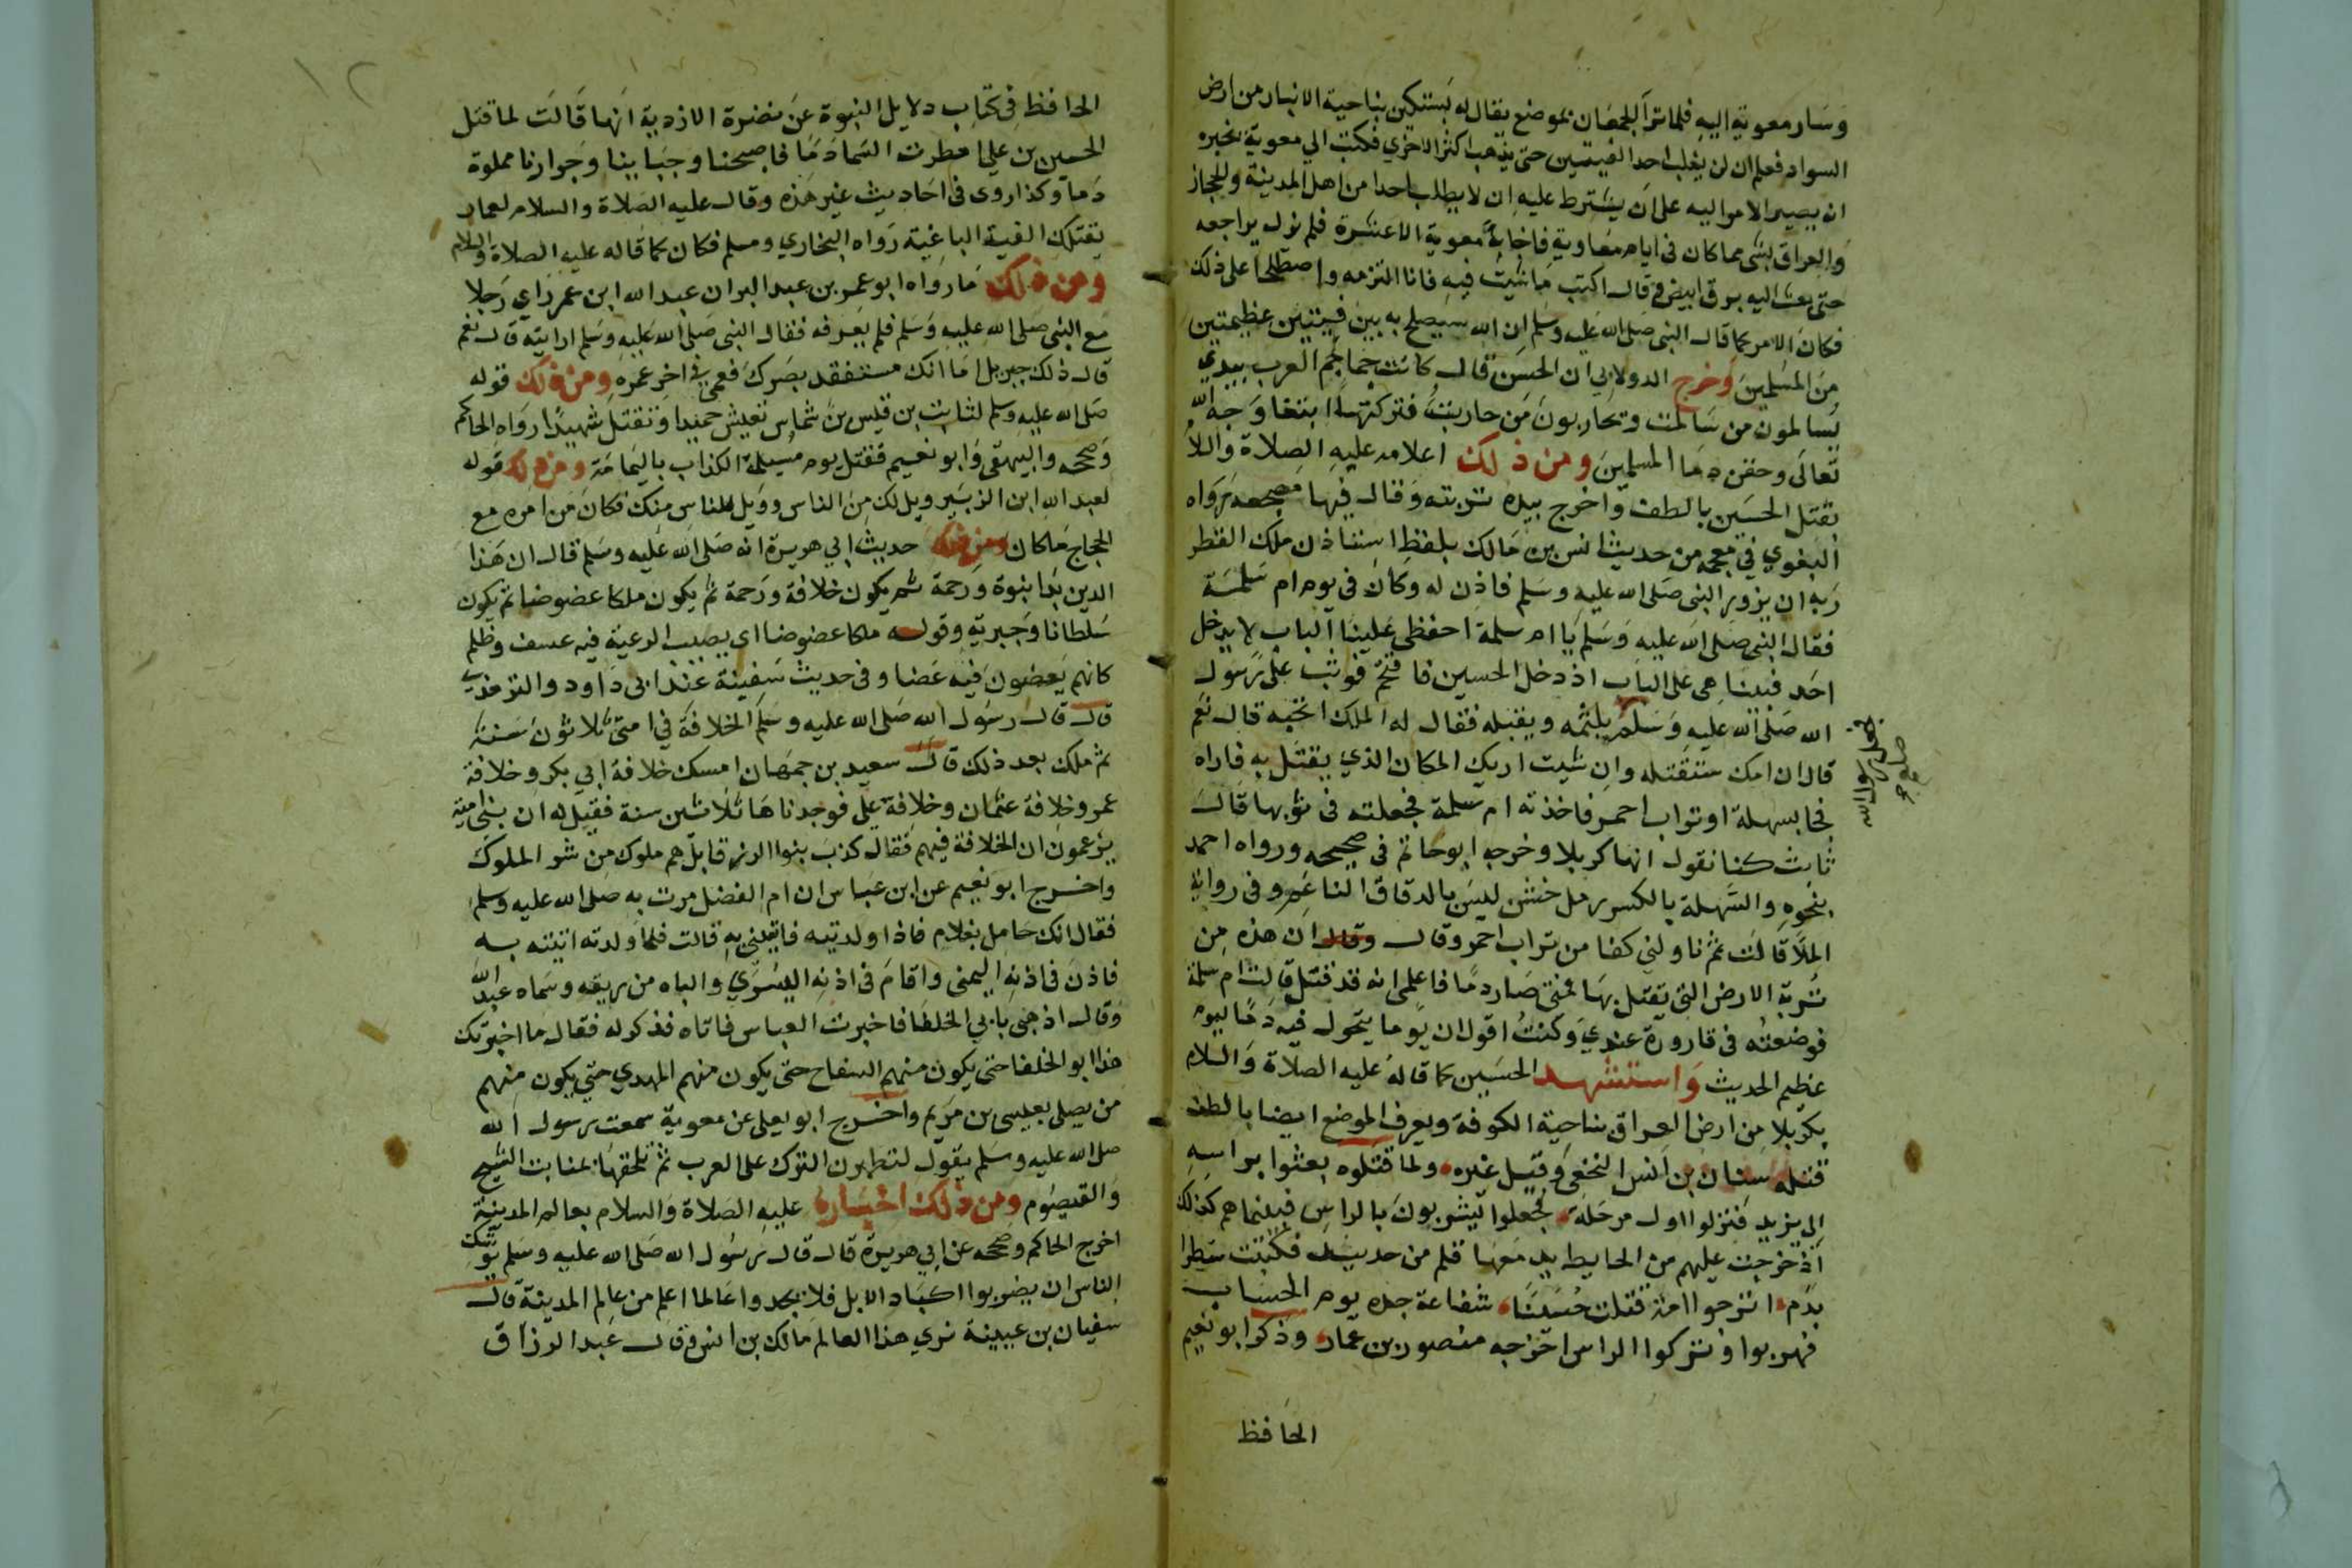 وسار معوية اليه فلما تراآ الجمعان بموضع يقال له بستكين بناحية الانبار من ارض
السواد فعلم ان لن يغلب احد الفيتين حتى يذهب اكثر الاخري فكتب الي معوية يخبره
انه يصير الامر اليه على ان يشترط عليه ان لا يطلب احدا من اهل المدينة والحجاز
والعراق بشى مما كان فى ايام معاوية فاجابه معوية الا عشرة فلم يزل يراجعه
حتى بعث اليه برق ابيض وقال اكتب ما شيت فيه فانا التزمه واصطلحا على ذلك
فكان الامر كما قال النبى صلى الله عليه وسلم ان الله سيصلح به بين فيتين عظيمتين
من المسلمين وخرج الدولابي ان الحسن قال كانت جماجم العرب بيدي
يسالمون من سالمت ويحاربون من حاربت فتركتها ابتغا وجه الله
تعالى وحقن دما المسلمين ومن ذلك اعلامه عليه الصلاة والسلام
بقتل الحسين بالطف واخرج بيده تربته وقال فيها مضجعه رواه
البغوي في معجمه من حديث انس بن مالك بلفظ استاذن ملك القطر
ربه ان يزور النبى صلى الله عليه وسلم فاذن له وكان فى يوم ام سلمة
فقال النبى صلى الله عليه وسلم يا ام سلمة احفظى علينا الباب لا يدخل
احد فبينا هى على الباب اذ دخل الحسين فاقتحم فوثب على رسول
الله صلى الله عليه وسلم يلثمه ويقبله فقال له الملك اتحبه قال نعم
فجعل رسول الله صلعم
قال ان امتك ستقتله وان شيت اريك المكان الذي يقتل به فاراه
فجا بسهلة او تراب احمر فاخذته ام سلمة فجعلته فى ثوبها قال
ثابت كنا نقول انها كربلا وخرجه ابو حاتم فى صحيحه ورواه احمد
بنحوه والسهلة بالكسر رمل خشن ليس بالدقاق الناعم وفى رواية
الملا قالت ثم ناولني كفا من تراب احمر وقال وقال ان هذه من
تربة الارض التى يقتل بها فمتى صار دما فاعلمى انه قد قتل قالت ام سلمة
فوضعته فى قارورة عندي وكنت اقول ان يوما يتحول فيه دما ليوم
عظيم الحديث واستشهد الحسين كما قاله عليه الصلاة والسلام
بكربلا من ارض العراق بناحية الكوفة ويعرف الموضع ايضا بالطف
قتله سنان بن انس النخعى وقيل غيره ولما قتلوه بعثوا براسه
الى يزيد فنزلوا اول مرحلة فجعلوا يشربون بالراس فبينما هم كذلك
اذ خرجت عليهم من الحايط يد معها قلم من حديد فكتبت سطرا
بدم اترجوا امة قتلت حسينا شفاعة جده يوم الحساب
فهربوا وتركوا الراس اخرجه منصور بن عمار وذكر ابو نعيم
الحافظ
١٢
الحافظ فى كتاب دلايل النبوة عن نضرة الازدية انها قالت لما قتل
الحسين بن علي امطرت السما دما فاصبحنا وجبابنا وجرارنا مملوة
دما وكذا روى فى احاديث غير هذه وقال عليه الصلاة والسلام لعمار
تقتلك الفية الباغية رواه البخاري ومسلم فكان كما قاله عليه الصلاة والسلام
ومن ذلك ما رواه ابو عمر بن عبد البر ان عبد الله ابن عمر راي رجلا
مع النبى صلى الله عليه وسلم فلم يعرفه فقال النبى صلى الله عليه وسلم ارايته قال نعم
قال ذلك جبريل اما انك ستفقد بصرك فعمى فى اخر عمره ومن ذلك قوله
صلى الله عليه وسلم لثابت بن قيس بن شماس تعيش حميدا وتقتل شهيدا رواه الحاكم
وصححه والبيهقى وابو نعيم فقتل يوم مسيلمة الكذاب باليمامة ومن ذلك قوله
لعبد الله ابن الزبير ويل لك من الناس وويل للناس منك فكان من امره مع
الحجاج ما كان ومن ذلك حديث ابي هريرة انه صلى الله عليه وسلم قال ان هذا
الدين بدا نبوة ورحمة ثم يكون خلافة ورحمة ثم يكون ملكا عضوضا ثم يكون
سلطانا وجبرية وقوله ملكا عضوضا اى يصيب الرعية فيه عسف وظلم
كانهم يعضون فيه عضا وفى حديث سفينة عند ابى داود والترمذي
قال قال رسول الله صلى الله عليه وسلم الخلافة في امتى ثلاثون سنة
ثم ملك بعد ذلك قال سعيد بن جمهان امسك خلافة ابي بكر وخلافة
عمر وخلافة عثمان وخلافة على فوجدناها ثلاثين سنة فقيل له ان بنى امية
يزعمون ان الخلافة فيهم فقال كذب بنوا الزرقا بل هم ملوك من شر الملوك
واخرج ابو نعيم عن ابن عباس ان ام الفضل مرت به صلى الله عليه وسلم
فقال انك حامل بغلام فاذا ولدتيه فاتينى به قالت فلما ولدته اتيته به
فاذن فى اذنه اليمنى واقام فى اذنه اليسري والباه من ريقه وسماه عبد الله
وقال اذهبى بابي الخلفا فاخبرت العباس فاتاه فذكر له فقال ما اخبرتك
هذا ابو الخلفا حتى يكون منهم السفاح حتى يكون منهم المهدي حتى يكون منهم
من يصلى بعيسى بن مريم واخرج ابو يعلى عن معوية سمعت رسول الله
صلى الله عليه وسلم يقول لتظهرن الترك على العرب ثم تلحقها بمنابت الشيح
والقيصوم ومن ذلك اخباره عليه الصلاة والسلام بعالم المدينة
اخرج الحاكم وصححه عن ابي هريرة قال قال رسول الله صلى الله عليه وسلم يوشك
الناس ان يضربوا اكباد الابل فلا يجدوا عالما اعلم من عالم المدينة قال
سفيان بن عيينة نري هذا العالم مالك بن انس وقال عبد الرزاق